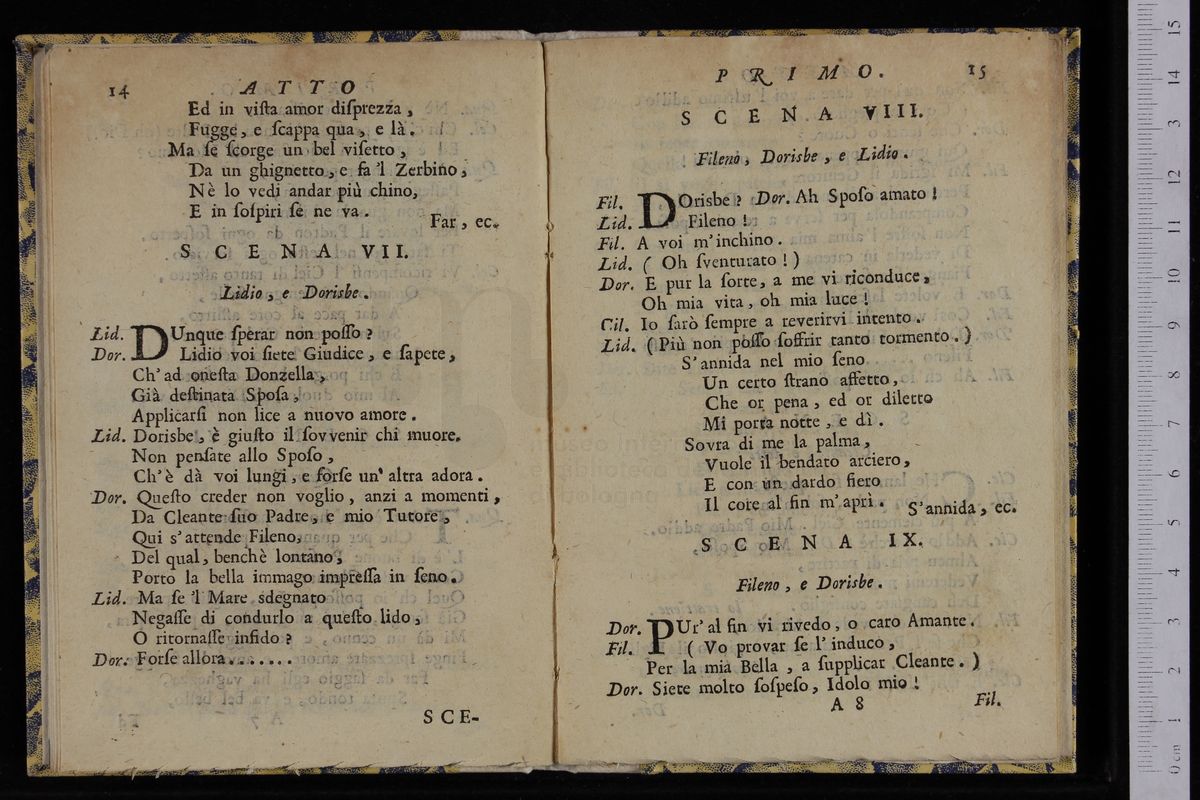 14 ATTO
Ed in viſta amor diſprezza,
Fugge, e ſcappa qua, e là.
Ma ſe ſcorge un bel viſetto,
Da un ghignetto, e fa 'l Zerbino,
Nè lo vedi andar più chino,
E in ſoſpiri ſe ne va.
Far, ec.
SCENA VII.
Lidio, e Dorisbe.
Lid. DUnque ſperar non poſſo?
Dor. Lidio voi ſiete Giudice, e ſapete,
Ch' ad oneſta Donzella,
Già deſtinata Spoſa,
Applicarſi non lice a nuovo amore.
Lid. Dorisbe, è giuſto il ſovvenir chi muore.
Non penſate allo Spoſo,
Ch' è dà voi lungi, e forſe un' altra adora.
Dor. Queſto creder non voglio, anzi a momenti,
Da Cleante ſuo Padre, e mio Tutore,
Qui s' attende Fileno,
Del qual, benchè lontano,
Porto la bella immago impreſſa in ſeno.
Lid. Ma ſe 'l Mare sdegnato
Negaſſe di condurlo a queſto lido,
O ritornaſſe infido?
Dor. Forſe allora.......
SCE-
PRIMO. 15
SCENA VIII.
Fileno, Dorisbe, e Lidio.
Fil. DOrisbe? Dor. Ah Spoſo amato!
Lid. Fileno!
Fil. A voi m' inchino.
Lid. (Oh ſventurato!)
Dor. E pur la ſorte, a me vi riconduce,
Oh mia vita, oh mia luce!
Cil. Io ſarò ſempre a reverirvi intento.
Lid. (Più non poſſo ſoffrir tanto tormento.)
S' annida nel mio ſeno
Un certo ſtrano affetto,
Che or pena, ed or diletto
Mi porta notte, e dì.
Sovra di me la palma,
Vuole il bendato arciero,
E con un dardo fiero
Il core al fin m' aprì.
S' annida, ec.
SCENA IX.
Fileno, e Dorisbe.
Dor. PUr' al fin vi rivedo, o caro Amante.
Fil. (Vo provar ſe l' induco,
Per la mia Bella, a ſupplicar Cleante.)
Dor. Siete molto ſoſpeſo, Idolo mio!
A 8 Fil.
0 cm 1 2 3 4 5 6 7 8 9 10 11 12 13 14 15